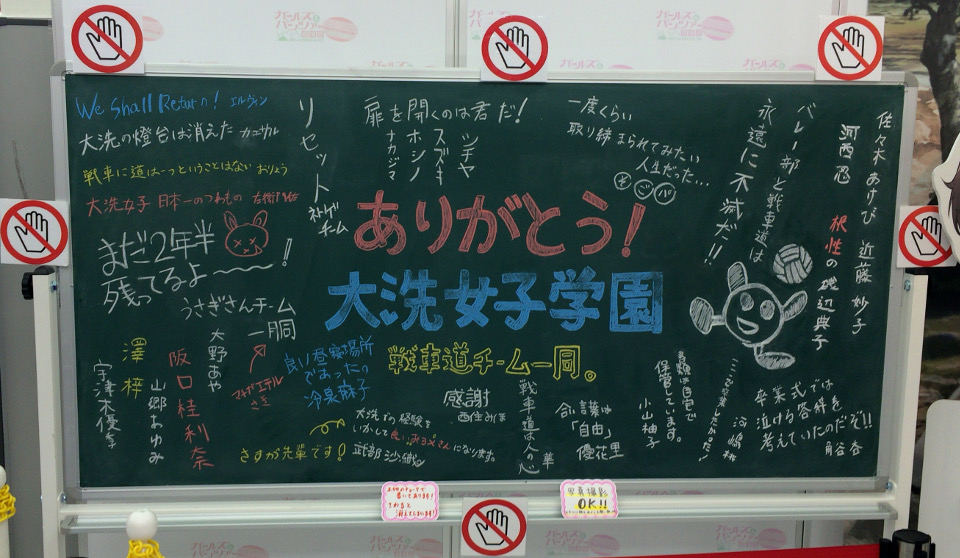 ガールズ&パンツァー
劇場版
We Shall Return! エルヴィン
大洗の燈台は消えた カエサル
戦車に道は一つということはない おりょう
大洗女子 日本一のつわもの
まだ2年半
残ってるよ〜〜〜!
うさぎさんチーム
一同
大野あや
阪口桂利奈
山郷あゆみ
澤 梓
宇津木優季
リセット
ネトゲ
チーム
扉を開くのは君だ!
ナカジマ
ホシノ
スズキ
ツチヤ
一度くらい
取り締まられてみたい
人生だった…
ソ ゴ パ
ありがとう!
大洗女子学園
戦車道チーム一同。
良い昼寝場所
であったの
冷泉麻子
さすが先輩です!
感謝
西住みほ
大洗での経験を
いかして良いお
になります。
武部沙織
戦車道は人の心
華
合言葉は
「自由」
優花里
保管しています。
小山柚子
河嶋桃
卒業式では
泣ける答辞を
考えていたのだぞ!!
角谷杏
バレー部と戦車道は
永遠に不滅だ!!
佐々木あけび
近藤 妙子
河西忍
根性の 磯辺典子
写真撮影
OK!!